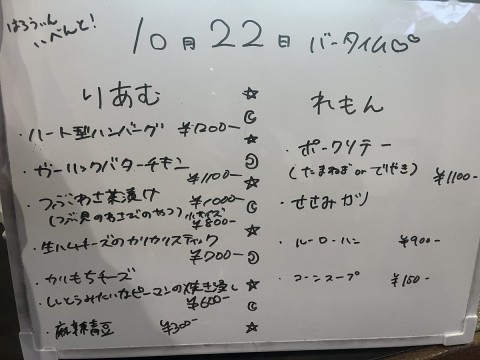 はろうぃん
いべんと!
10月22日 バータイム♡♡
りあむ
・ハート型ハンバーグ ¥1200-
・ガーリックバターチキン
¥1100-
・つぶわさ茶漬け ¥1000-
(つぶ貝のわさびのやつ) 小サイズ
¥800-
・生ハムチーズのカリカリスティック
¥700-
・かりもちチーズ
・ししとうみたいなピーマンの焼き浸し
¥600-
・麻辣青豆 ¥300-
れもん
・ポークソテー
(たまねぎ or てりやき)
¥1100-
・せさみガツ
・ルーローハン ¥900-
・コーンスープ ¥150-